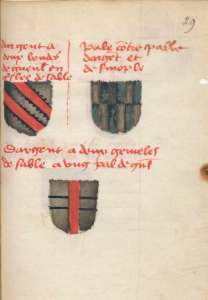 29
dargent a
deux bendes
de gueul en
de sable
pale contre palle
dargēt et
de sinople
Dargent a deux gemeles
de sable a ung pal de gul